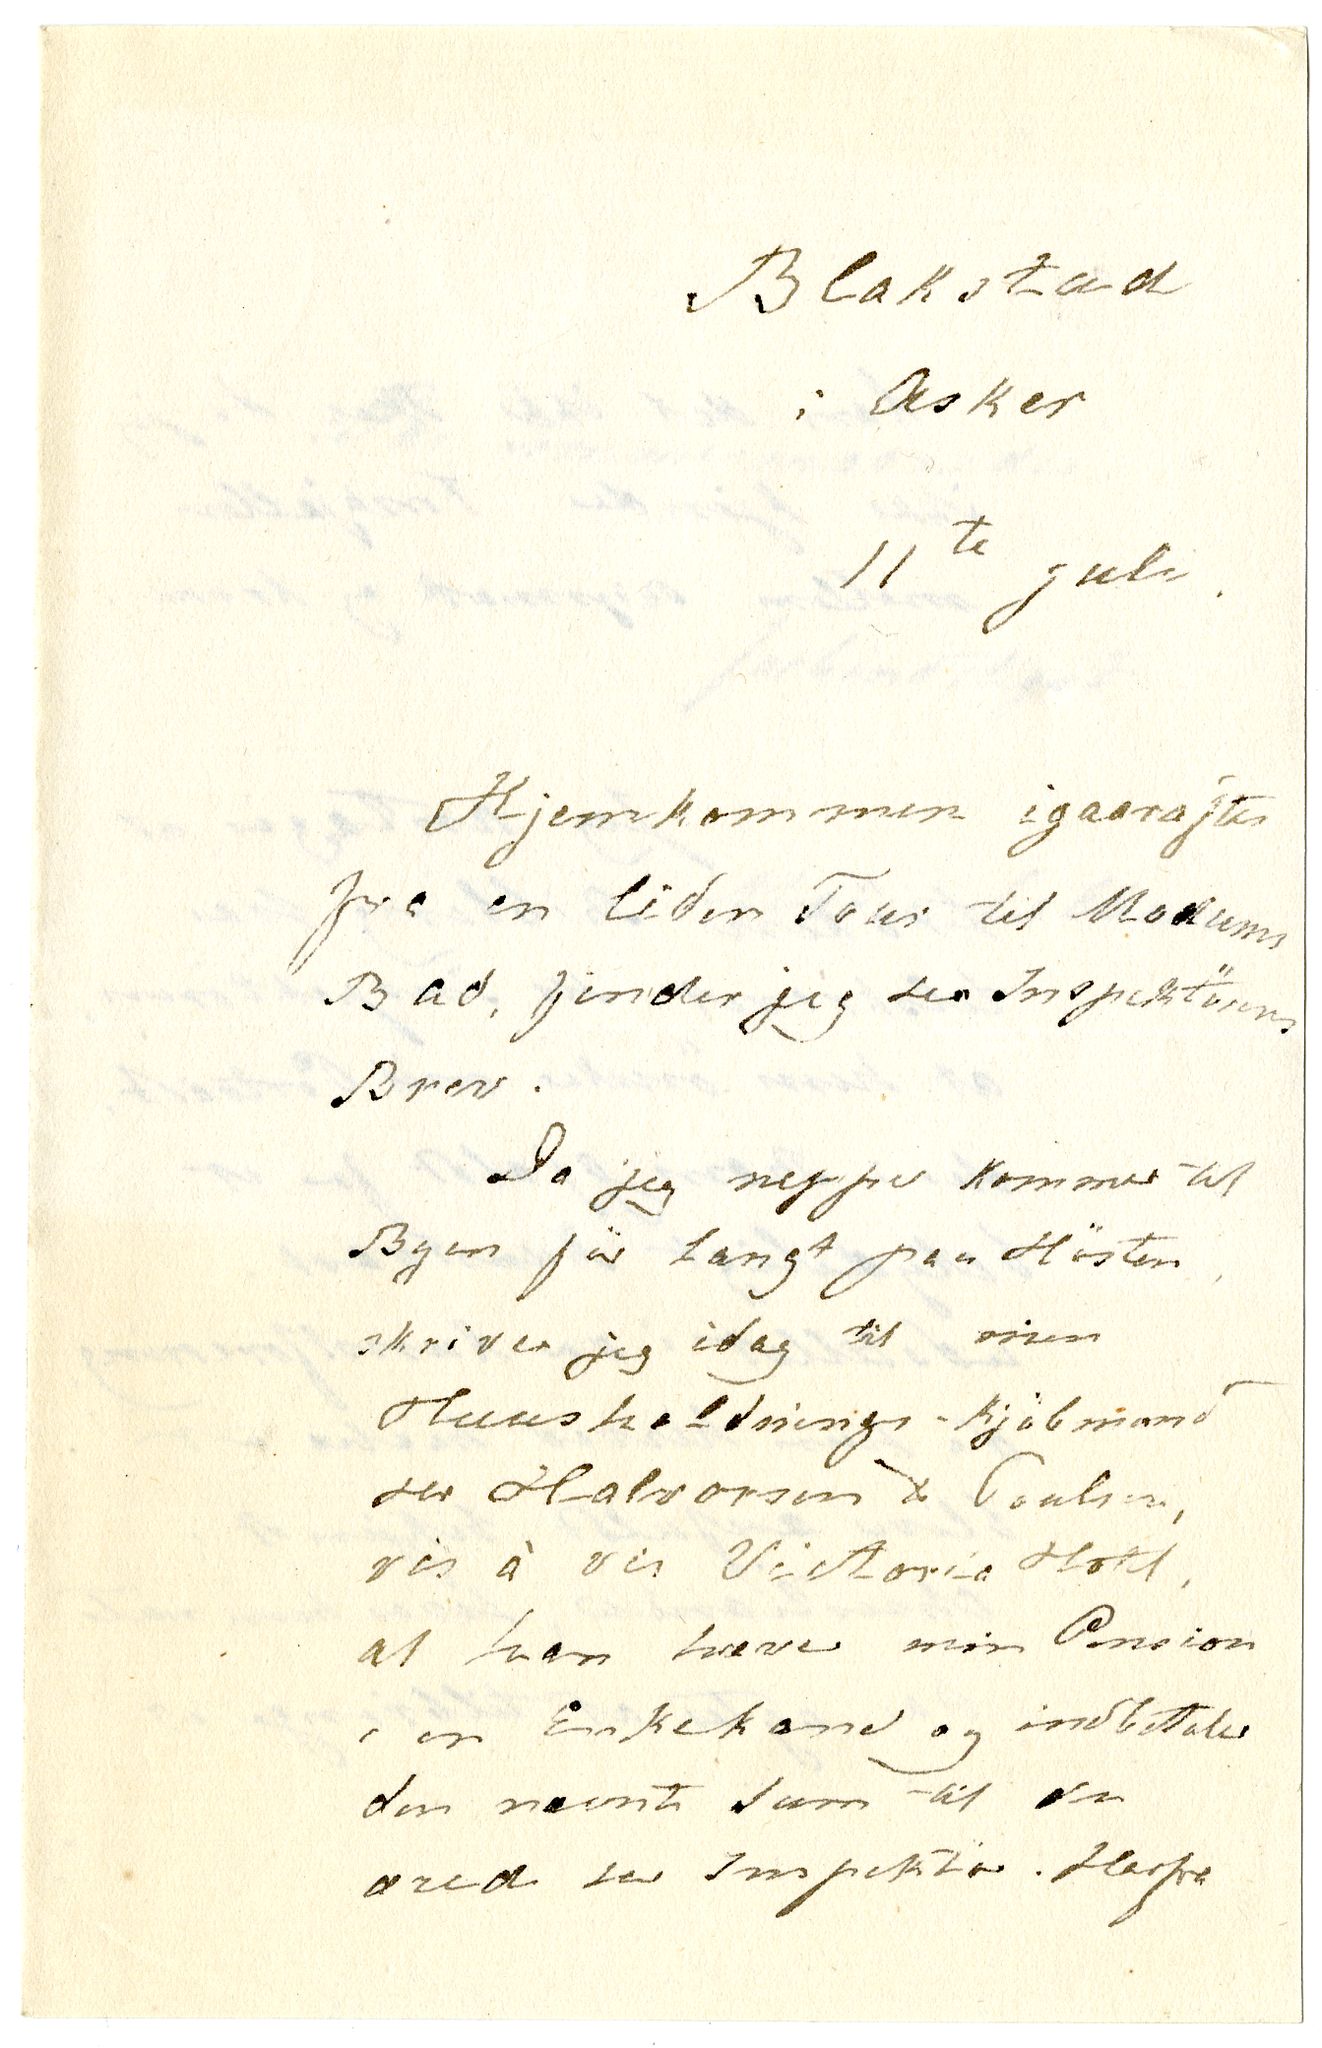 Blakstad
i Asker
11te Juli.
Hjemkommen igaaraftes
fra en liden Tour til Modums
Bad, finder jeg Her Inspektörens
Brev.
Da jeg neppe kommer til
Byen för langt paa Hösten,
skriver jeg idag til min
Huusholdnings-Kjöbmand
Her Halvorsen & Poulsen,
vis à vis Victoria Hotel,
at han hæve min Pension
i en Enkekand og indbetaler
den nævnte Sum til den
ærede Her Inspektör. Herfra